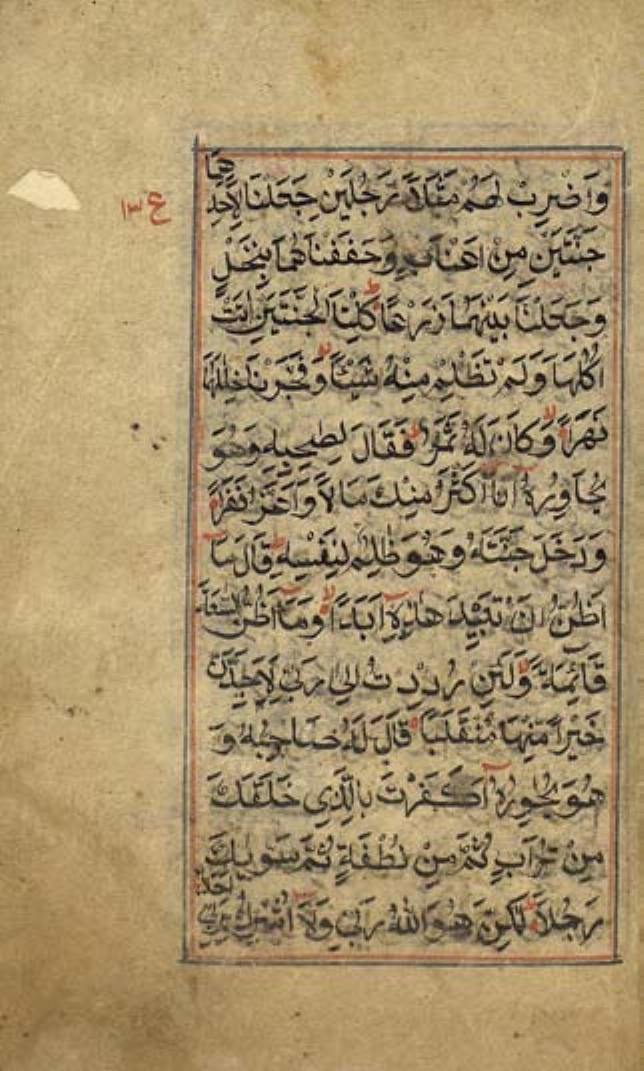 ع ١٣
وَاضْرِبْ لَهُمْ مَثَلًا رَجُلَيْنِ جَعَلْنَا لِاَحَدِهِمَا
جَنَّتَيْنِ مِنْ اَعْنَابٍ وَحَفَفْنَاهُمَا بِنَخْلٍ
وَجَعَلْنَا بَيْنَهُمَا زَرْعًا كِلْتَا الْجَنَّتَيْنِ اٰتَتْ
اُكُلَهَا وَلَمْ تَظْلِمْ مِنْهُ شَيْئًا وَفَجَّرْنَا خِلٰلَهُمَا
نَهَرًا وَكَانَ لَهُ ثَمَرٌ فَقَالَ لِصٰحِبِهِ وَهُوَ
يُحَاوِرُهُ اَنَا اَكْثَرُ مِنْكَ مَالًا وَاَعَزُّ نَفَرًا
وَدَخَلَ جَنَّتَهُ وَهُوَ ظٰلِمٌ لِنَفْسِهِ قَالَ مَا
اَظُنُّ اَنْ تَبِيْدَ هٰذِهِ اَبَدًا وَمَا اَظُنُّ السَّاعَةَ
قَائِمَةً وَلَئِنْ رُدِدْتُ اِلٰى رَبِّى لَاَجِدَنَّ
خَيْرًا مِنْهَا مُنْقَلَبًا قَالَ لَهُ صَاحِبُهُ وَ
هُوَ يُحَاوِرُهُ اَكَفَرْتَ بِالَّذِى خَلَقَكَ
مِنْ تُرَابٍ ثُمَّ مِنْ نُطْفَةٍ ثُمَّ سَوّٰيكَ
رَجُلًا لٰكِنَّ هُوَ اللّٰهُ رَبِّى وَلَا اُشْرِكُ بِرَبِّى اَحَدًا